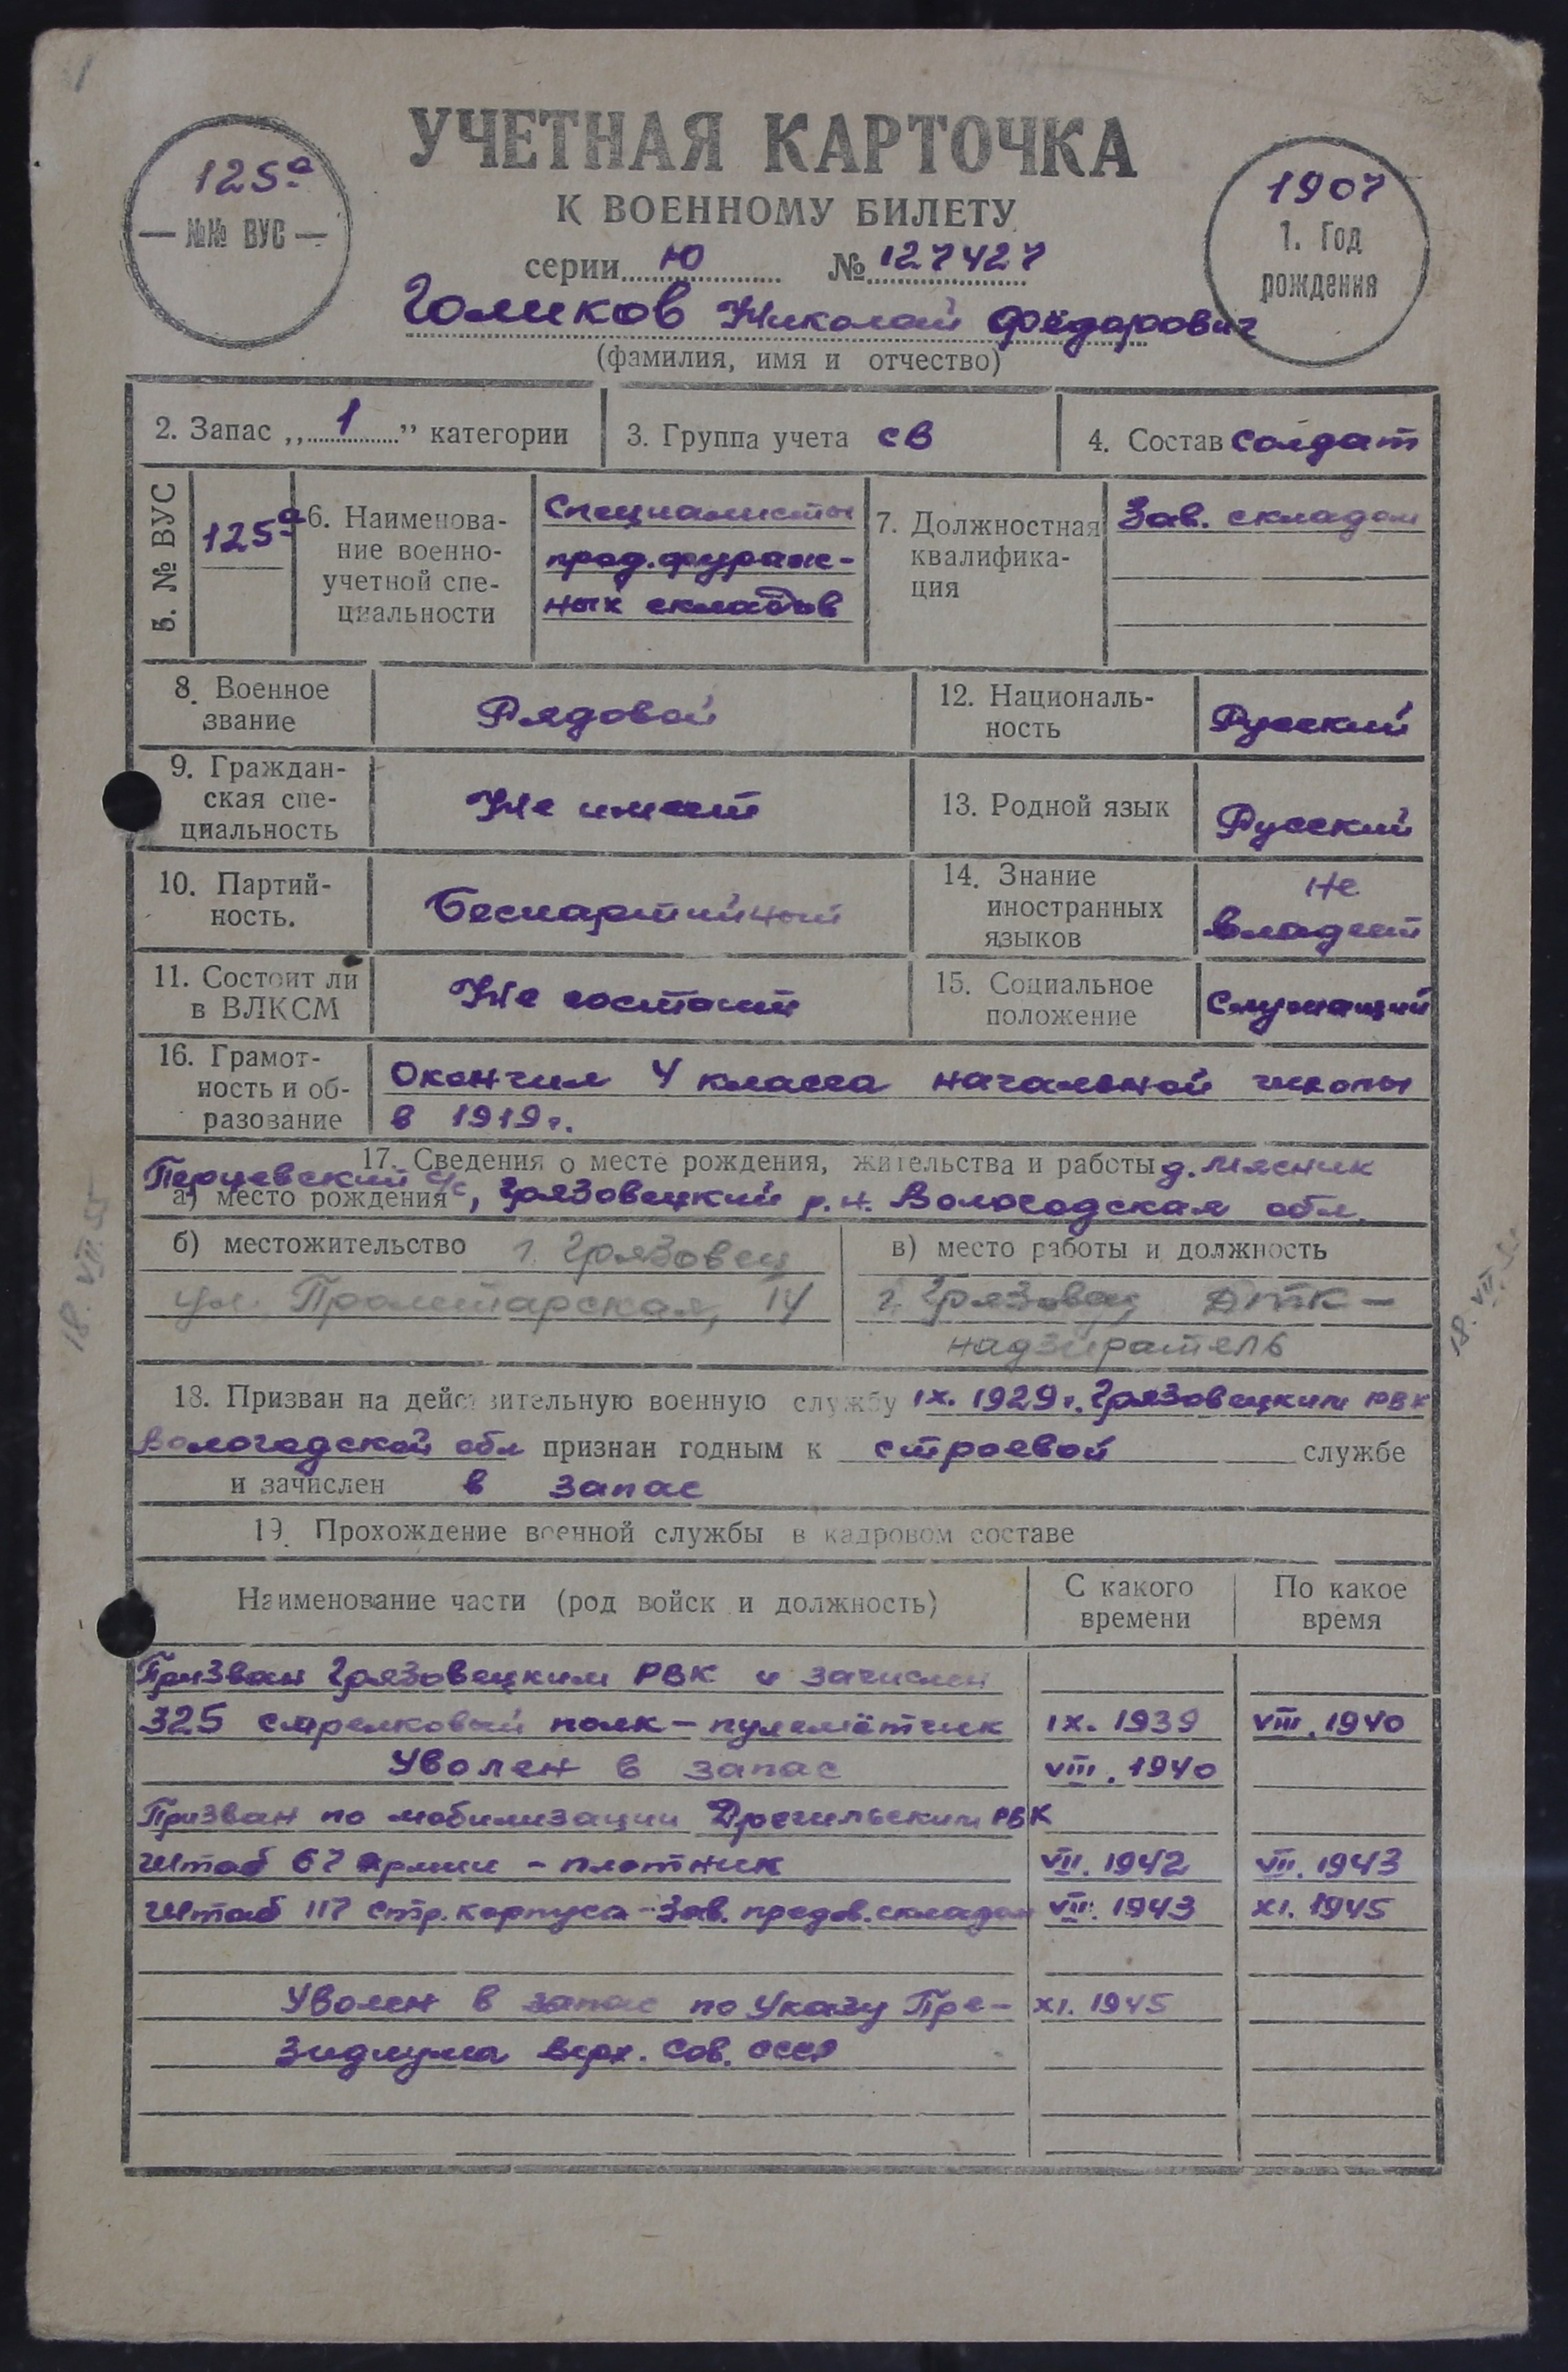 УЧЕТНАЯ КАРТОЧКА
К ВОЕННОМУ БИЛЕТУ
серии Ю № 127427
125а
— №№ ВУС —
1907
1. Год
рождения
Голиков Николай Фёдорович
(фамилия, имя и отчество)
2. Запас „1” категории
3. Группа учета св
4. Состав солдат
5. № ВУС
125а
6. Наименова-
ние военно-
учетной спе-
циальности
Специалисты
прод. фураж-
ных складов
7. Должностная
квалифика-
ция
Зав. складом
8. Военное
звание
Рядовой
12. Националь-
ность
Русский
9. Граждан-
ская спе-
циальность
Не имеет
13. Родной язык
Русский
10. Партий-
ность.
Беспартийный
14. Знание
иностранных
языков
Не
владеет
11. Состоит ли
в ВЛКСМ
Не состоит
15. Социальное
положение
Служащий
16. Грамот-
ность и об-
разование
Окончил 4 класса начальной школы
в 1919г.
17. Сведения о месте рождения, жительства и работы д. Мясник
Перцевский с/с
а) место рождения , Грязовецкий р.н. Вологодская обл.
б) местожительство г. Грязовец
ул. Пролетарская, 14
в) место работы и должность
г. Грязовец ДТК –
надзиратель
18. VII. 55
18. VII.
18. Призван на действительную военную службу IX. 1929г. Грязовецким РВК
Вологодской обл признан годным к строевой службе
и зачислен в запас
19. Прохождение военной службы в кадровом составе
Наименование части (род войск и должность)
С какого
времени
По какое
время
Призван Грязовецким РВК и зачислен
325 стрелковый полк – пулемётчик IX. 1939 VIII. 1940
Уволен в запас VIII. 1940
Призван по мобилизации РВК
Штаб 67 Армии – плотник VII. 1942 VII. 1943
Штаб 117 стр. корпуса – Зав. продов. складом VII. 1943 XI. 1945
Уволен в запас по Указу Пре- XI. 1945
зидиума Верх. Сов. СССР